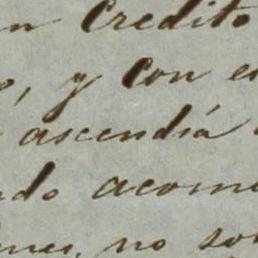 n Credito
, y con e
ascendía
do acome
nes, no so